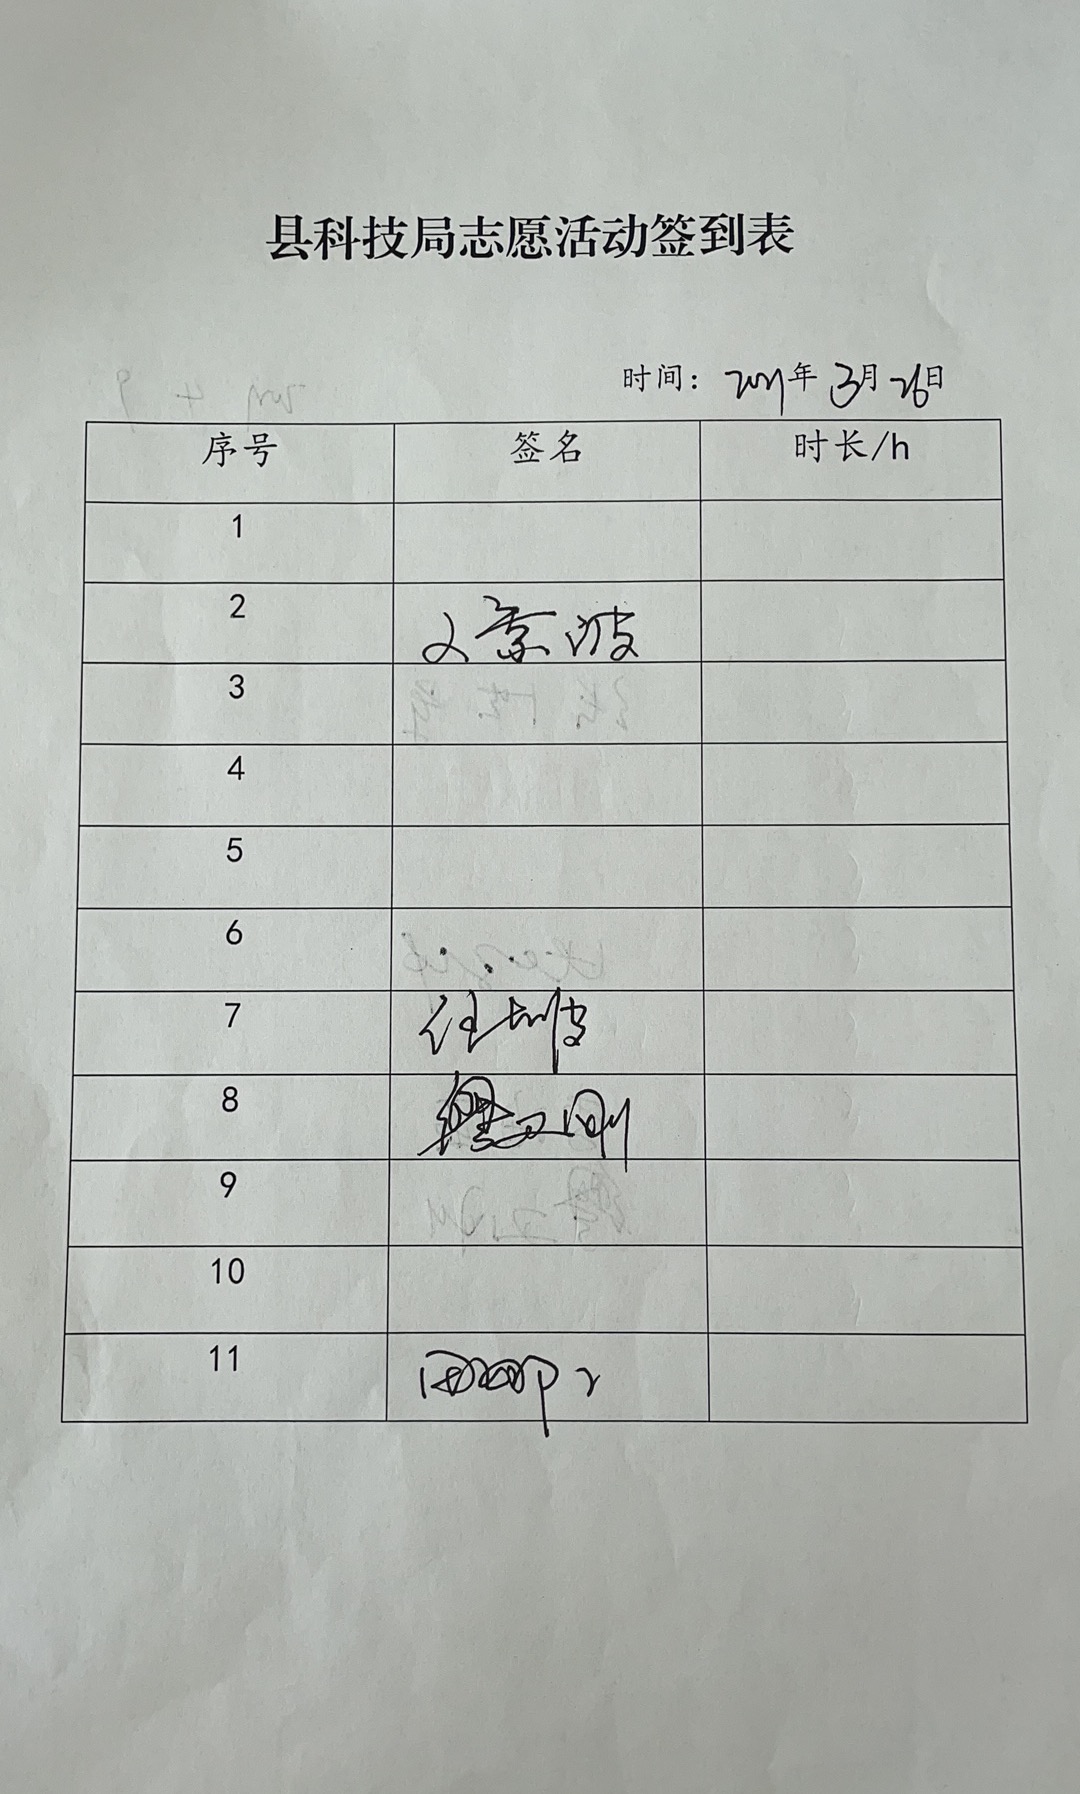 县科技局志愿活动签到表
时间：2021年3月26日
序号 签名 时长/h
1
2 文景波
3
4
5
6
7 任
8 刚
9
10
11